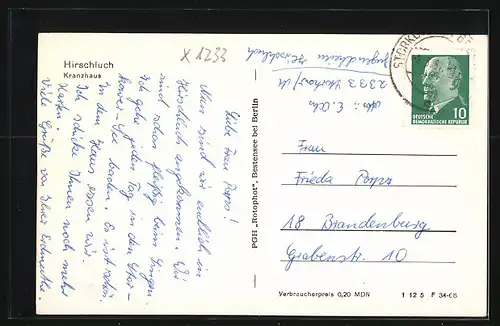 Hirschluch
Kranzhaus
X 1233
Liebe Frau Popp!
Nun sind wir endlich in
Hirschluch angekommen. Wir
sind schon fleißig beim Singen.
Ich gehe jeden Tag in den Stor-
kower-See baden. Es ist schön.
In dem Haus essen wir.
Ich schicke Ihnen noch mehr
Karten.
Viele Grüße von Ihrer
PGH „Rotophot“, Bestensee bei Berlin
Abs.: E.
2333 Storkow/M
Jugendheim Hirschluch
STORKOW
10
DEUTSCHE
DEMOKRATISCHE REPUBLIK
Frau
Frieda Popp
18 Brandenburg
Grabenstr. 10
Verbraucherpreis 0,20 MDN
1 12 5 F 34-66